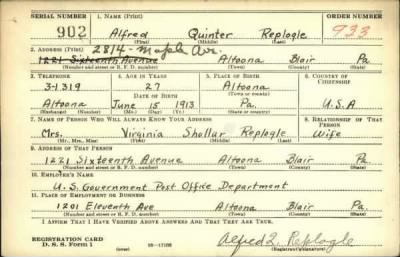 SERIAL NUMBER 1. NAME (Print) ORDER NUMBER
902 Alfred Quinter Replogle 933
(First) (Middle) (Last)
2. ADDRESS (Print) 2814 - Maple Ave.
1221 Sixteenth Avenue Altoona Blair Pa
(Number and street or R. F. D. number) (Town) (County) (State)
3. TELEPHONE 4. AGE IN YEARS 5. PLACE OF BIRTH 6. COUNTRY OF CITIZENSHIP
3-1319 27 Altoona
DATE OF BIRTH (Town or county)
Altoona June 15 1913 Pa. U.S.A
(Exchange) (Number) (Mo.) (Day) (Yr.) (State or country)
7. NAME OF PERSON WHO WILL ALWAYS KNOW YOUR ADDRESS 8. RELATIONSHIP OF THAT PERSON
Mrs. Virginia Shollar Replogle Wife
(Mr., Mrs., Miss) (First) (Middle) (Last)
9. ADDRESS OF THAT PERSON
1221 Sixteenth Avenue Altoona Blair Pa.
(Number and street or R. F. D. number) (Town) (County) (State)
10. EMPLOYER'S NAME
U.S. Government Post Office Department
11. PLACE OF EMPLOYMENT OR BUSINESS
1201 Eleventh Ave Altoona Blair Pa.
(Number and street or R. F. D. number) (Town) (County) (State)
I AFFIRM THAT I HAVE VERIFIED ABOVE ANSWERS AND THAT THEY ARE TRUE.
REGISTRATION CARD
D. S. S. Form 1 (over) Alfred Q. Replogle
(Registrant's signature)